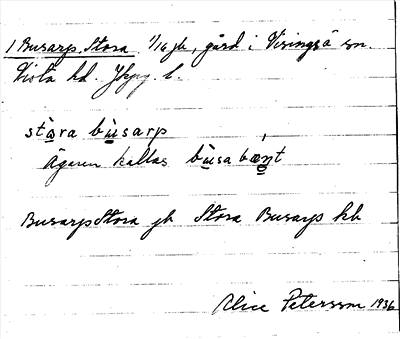 1 Busarp, Stora 1/16 jb, gård i Visingsö sn.
Vista hd. Jkpg. l.
stòra bùsarp
Ägaren kallas bùsa bæŋt
Busarp Stora jb Stora Busarp kb
Alice Petersson 1936